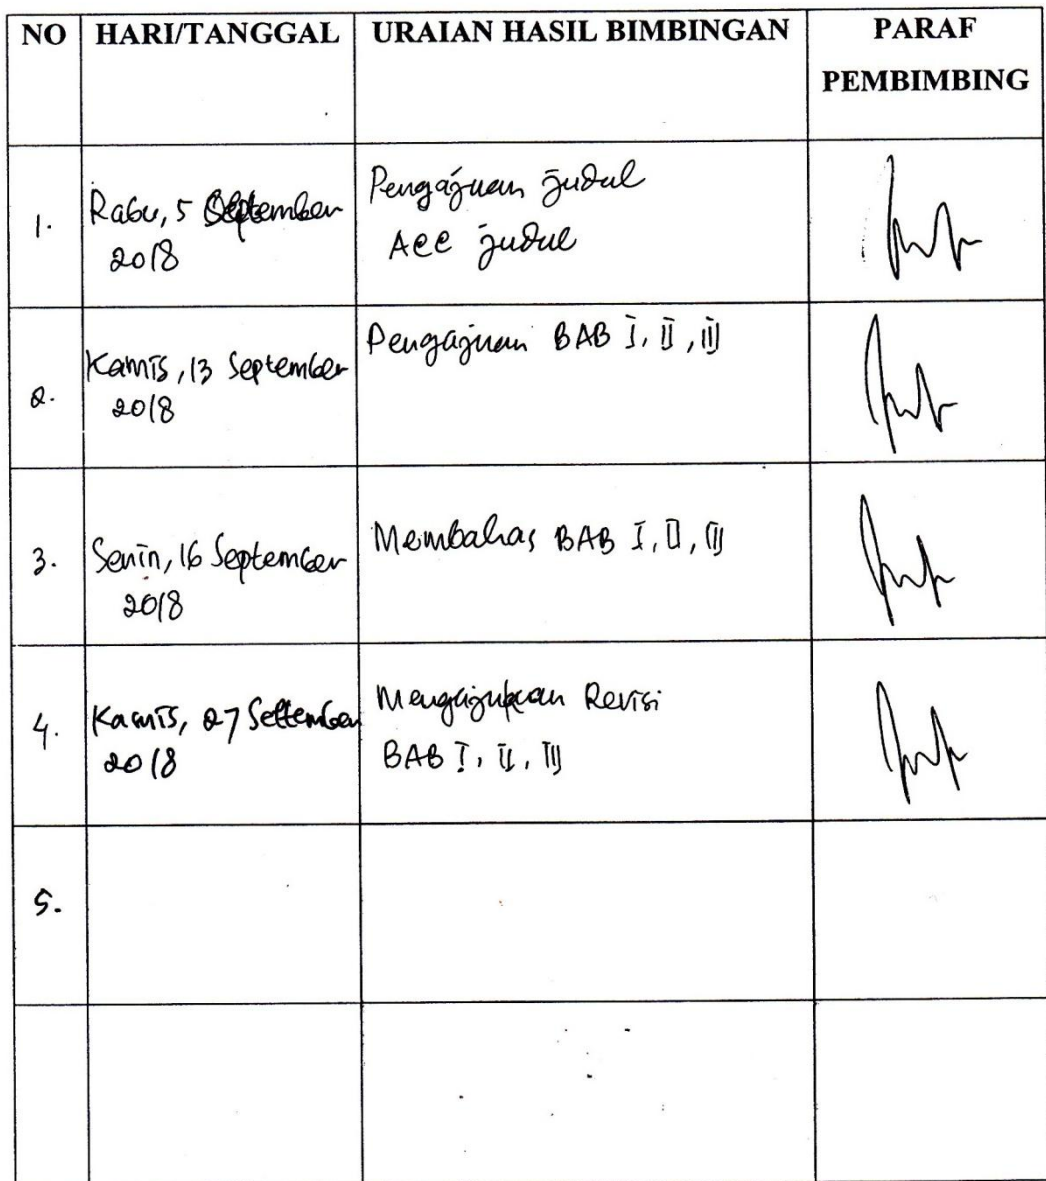 NO HARI/TANGGAL URAIAN HASIL BIMBINGAN PARAF
PEMBIMBING
1. Rabu, 5 September
2018
Pengajuan judul
Acc judul
2. Kamis, 13 September
2018
Pengajuan BAB I, II, III
3. Senin, 16 September
2018
Membahas BAB I, II, III
4. Kamis, 27 September
2018
Mengajukan Revisi
BAB I, II, III
5.